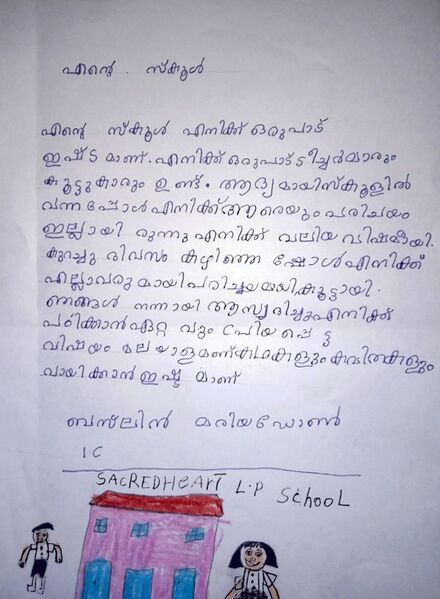 എന്റെ . സ്കൂൾ
എന്റെ സ്കൂൾ എനിക്ക് ഒരുപാട്
ഇഷ്ട മാണ്. എനിക്ക് ഒരുപാട് ടീച്ചർമാരും
കൂട്ടുകാരും ഉണ്ട്. ആദ്യമായി സ്കൂളിൽ
വന്നപ്പോൾ എനിക്ക് ആരെയും പരിചയം
ഇല്ലായി രുന്നു എനിക്ക് വലിയ വിഷമമായി.
കുറച്ചു ദിവസം കഴിഞ്ഞ പ്പോൾ എനിക്ക്
എല്ലാവരു മായി പരിചയമായി കൂട്ടായി.
ഞങ്ങൾ നന്നായി ആസ്വദിച്ചു എനിക്ക്
പഠിക്കാൻ ഏറ്റ വും പ്രിയ പ്പെ ട്ട
വിഷയം മലയാളമണ് കഥകളും കവിതകളും
വായിക്കാൻ ഇഷ്ട മാണ്
മരിയഡോൺ
1 C
SACREDHEART L.P SCHOOL